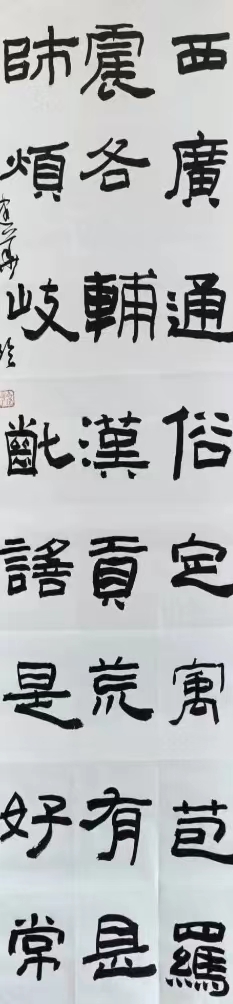 西廣通俗定寓苞羈
震各輔漢貢荒有是
師煩岐齔謠是好常